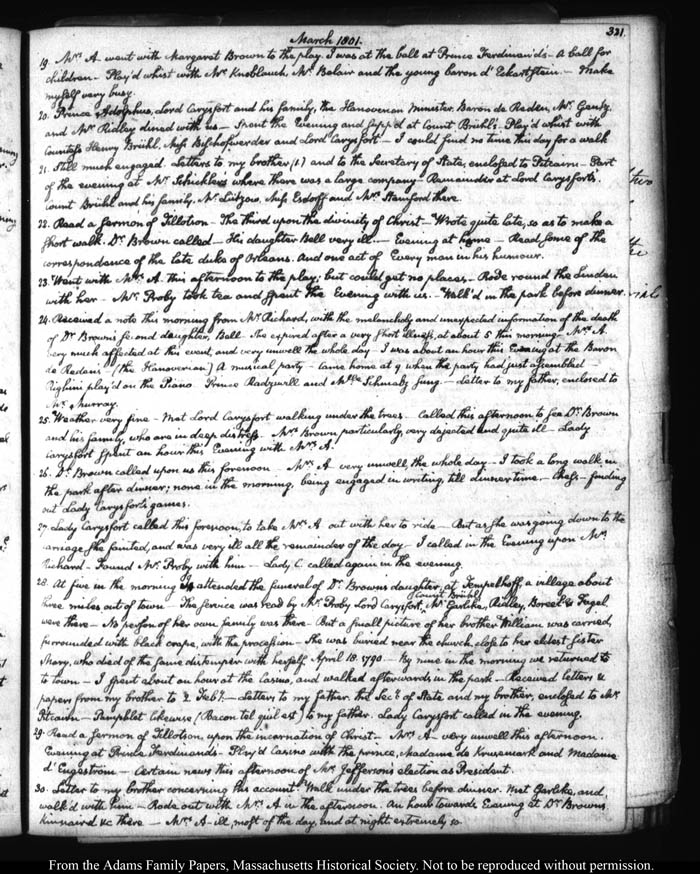 March 1801.
321
19. Mrs. A. went with Margaret Brown to the play. I was at the ball at Prince Ferdinand's. A ball for
children — Play'd whist with Mr. Knoblauch, Mr. Belair and the young baron d'Eckartstein — Make
myself very busy.
20. Prince Adolphus, Lord Carysfort and his family, the Hanoverian Minister Baron de Reden, Mr. Gentz,
and Mr. Ridley dined with us — Spent the Evening and supp'd at Count Brühl's. Play'd whist with
Countess Henry Brühl, Miss Bishofswerder and Lord Carysfort — I could find no time this day for a walk
21. Still much engaged. Letters to my brother and to the Secretary of State, enclosed to Pitcairn — Part
of the evening at Mr. Schickler's where there was a large company — Remainder at Lord Carysfort's.
Count Brühl and his family, Mr. Lützow, Miss Esdorff and Mrs. Stamford there.
22. Read a sermon of Tillotson — The third upon the divinity of Christ — Wrote quite late, so as to make a
short walk. Dr. Brown called — His daughter Bell very ill. — Evening at home — Read some of the
correspondence of the late duke of Orleans. And one act of Every man in his humour.
23. Went with Mrs. A. this afternoon to the play; but could get no places — Rode round the Linden
with her — Mr. Proby took tea and spent the Evening with us. Walk'd in the park before dinner.
24. Received a note this morning from Mr. Richard, with the melancholy and unexpected information of the death
of Dr. Brown's second daughter, Bell — She expired after a very short illness, at about 5 this morning — Mrs. A.
very much affected at this event, and very unwell the whole day — I was about an hour this Evening at the Baron
de Reden's — (the Hanoverian) A musical party — came home at 9 when the party had just assembled —
Righini play'd on the Piano. Prince Radzivill and Schmalz sung. — Letter to my father, enclosed to
Mr. Murray.
25. Weather very fine — Met Lord Carysfort walking under the trees — Called this afternoon to see Dr. Brown
and his family, who are in deep distress. Mrs. Brown particularly, very dejected and quite ill — Lady
Carysfort spent an hour this Evening with Mrs. A.
26. Dr. Brown called upon us this forenoon — Mrs. A. very unwell, the whole day — I took a long walk in
the park after dinner; none in the morning, being engaged in writing, till dinner time. Chess — finding
out Lady Carysfort's games.
27. Lady Carysfort called this forenoon, to take Mrs. A. out with her to ride — But as she was going down to the
carriage she fainted, and was very ill all the remainder of the day — I called in the Evening upon Mr.
Richard — Found Mr. Proby with him — Lady C. called again in the evening.
28. At five in the morning I attended the funeral of Dr. Brown's daughter, at Tempelhoff, a village about
Count Brühl
three miles out of town — The service was read by Mr. Proby. Lord Carysfort, Mr. Garlike, Ridley, Boreel & Fagel
were there — No person of her own family was there — But a small picture of her brother William was carried,
surrounded with black crape, with the procession — She was buried near the church, close to her eldest sister
Mary, who died of the same distemper with herself, April 18. 1790 — By nine in the morning we returned to
to town — I spent about an hour at the Casino, and walked afterwards in the park — Received letters &
papers from my brother to 2 Feby. — Letters to my father, the Secy. of State and my brother, enclosed to Mr.
Pitcairn — Pamphlet likewise (Bacon tel qu'il est) to my father. Lady Carysfort called in the evening.
29. Read a sermon of Tillotson, upon the incarnation of Christ — Mrs. A. very unwell this afternoon.
Evening at Prince Ferdinand's — Play'd Casino with the prince, Madame de Krusemark and Madame
d'Engeström — Certain news this afternoon of Mr. Jefferson's election as President.
30. Letter to my brother concerning his account. Walk under the trees before dinner. Met Garlike, and
walk'd with him — Rode out with Mrs. A in the afternoon. An hour towards Evening at Dr. Brown's
Kinnaird &c there — Mrs. A. ill, most of the day, and at night extremely so.
From the Adams Family Papers, Massachusetts Historical Society. Not to be reproduced without permission.